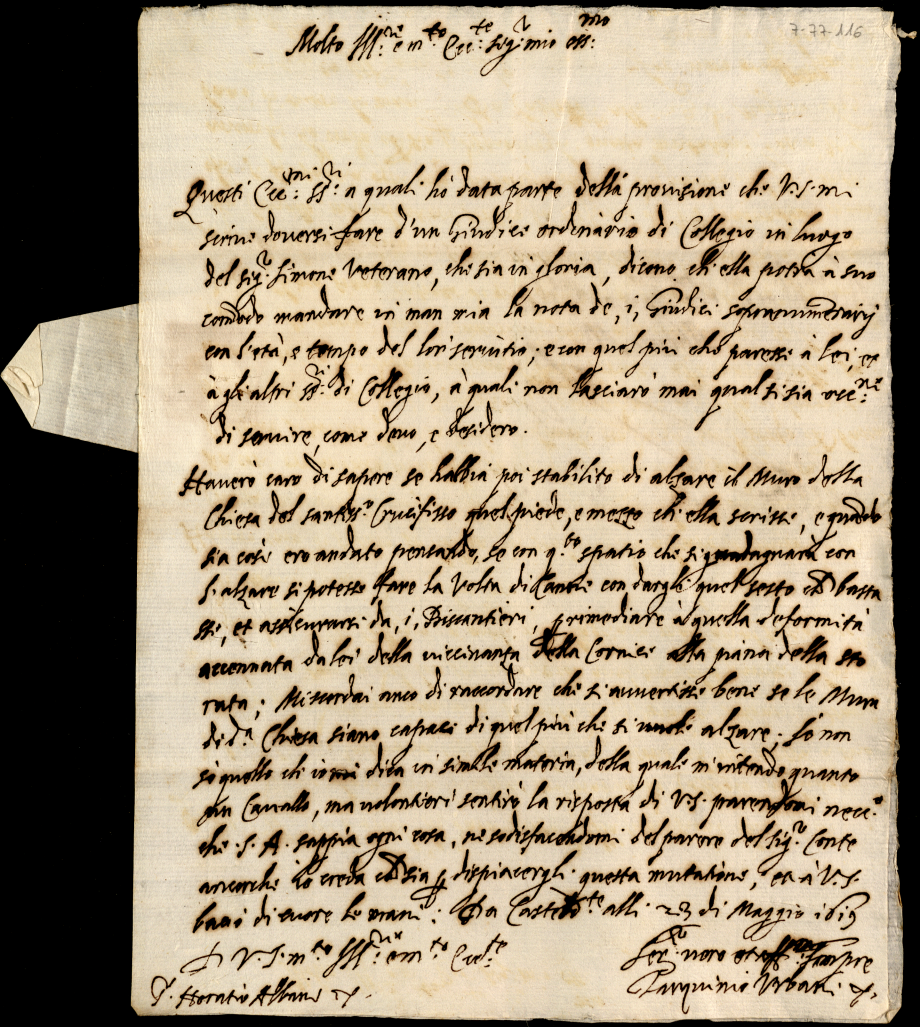 7-77-116
Molto Ill.re e m.to Ecc.te sig.r mio oss.mo
Questi Ecc.mi ss.ri a quali hò data parte della provisione che V.S. mi
scrive doversi fare d'un Giudice ordinario di Collegio in luogo
del sig.r Simone Veterano, che sia in gloria, dicono ch'ella potrà à suo
com̄odo mandare in man mia la nota de, i, Giudici sopranumerarij
con l'età, e tempo del lor servitio, e con quel più che paresse à lei, et
à gl'altri ss.ri di Collegio, à quali non lasciarò mai qual si sia occ.ne
di servire, come devo, e desidero.
Haverò caro di sapere se habbia poi stabilito di alzare il Muro della
Chiesa del santiss.o Crucifisso quel piede, e mezzo ch'ella scrisse, e quando
sia così ero andato pensando, se con q.to spatio che si guadagnarà con
l'alzare si potesse fare la Volta di Canne con dargli quel sesto ch basta
sse, et assicurarsi da, i, , p rimediare à quella deformità
accennata da lei della viccinanza della Cornice alla piana della
rata; Mi scordai anco di raccordare che si avvertisse bene se le Mura
di d.a Chiesa siano capaci di quel più che si vuole alzare; Io non
sò quello ch'io mi dica in simile materia, della quale m'intendo quanto
un Cavallo, ma volontieri sentirò la risposta di V.S. parendomi nece.o
che S. A. sappia ogni cosa, ne sodisfacendomi del parere del sig.r Conte
ancorche Io creda ch sia p dispiacergli questa mutatione, et à V.S.
bacio di cuore le mani. Da Casteld.te alli 23 di Maggio 1619
D V.S. m.to Ill.re e m.to Ecc.te
Ser.r vero et aff.mo sempre
S. Horatio Albani
Tarquinio Urbani